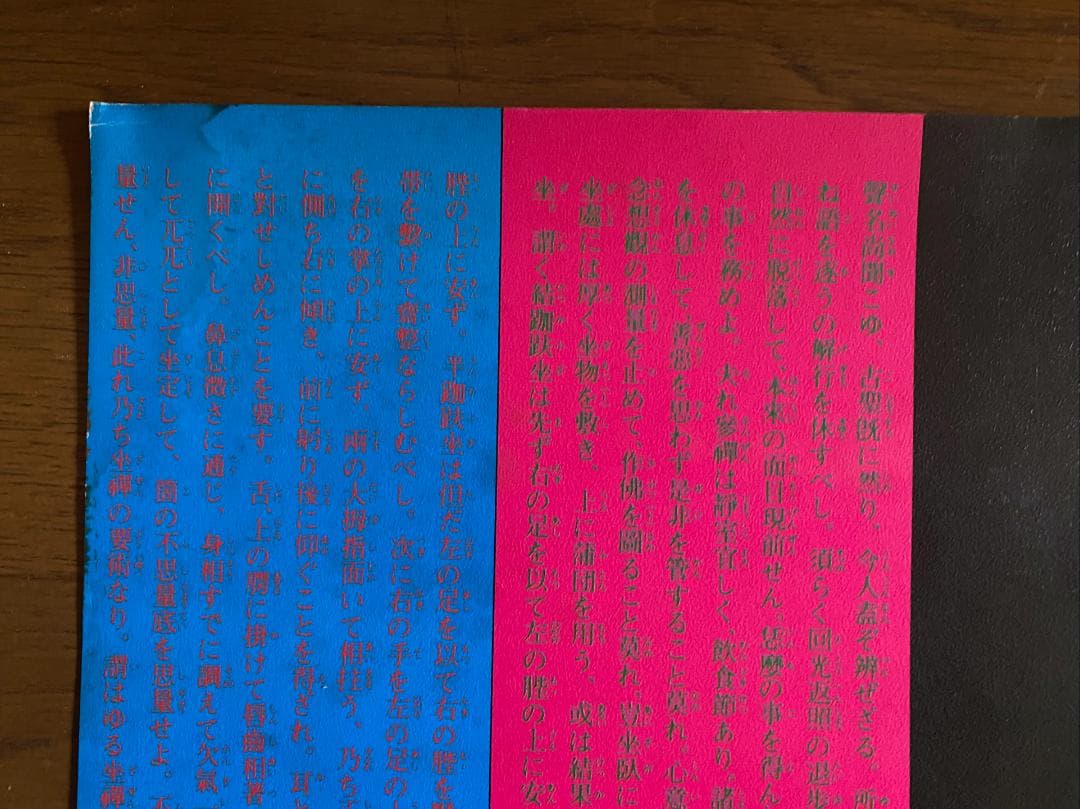 聲名尚聞こゆ、古聖既に然り、今人盍ぞ辨ぜざる。所
ね語を逐うの解行を休すべし。須らく回光返照の退歩
自然に脱落して、本來の面目現前せん。恁麼の事を得ん
の事を務めよ。夫れ參禪は靜室宜しく、飮食節あり。諸
を休息して、善惡を思わず是非を管すること莫れ。心意
念想觀の測量を止めて、作佛を圖ること莫れ、豈坐臥に
坐處には厚く坐物を敷き、上に蒲団を用う。或は結果
坐。謂く結跏趺坐は先ず右の足を以て左の䏶の上に安
䏶の上に安ず。半跏趺坐は但だ左の足を以て右の䏶を
帶を繫けて齋整ならしむべし。次に右の手を左の足の
を右の掌の上に安ず、兩の大拇指面いて相拄う、乃ち
に側ち右に傾き、前に躬り後に仰ぐことを得ざれ。耳と
と對せしめんことを要す。舌、上の腭に掛けて唇齒相著
に開くべし。鼻息微さに通じ、身相すでに調えて欠氣
して兀兀として坐定して、箇の不思量底を思量せよ。不
量せん、非思量、此れ乃ち坐禪の要術なり。謂はゆる坐禪